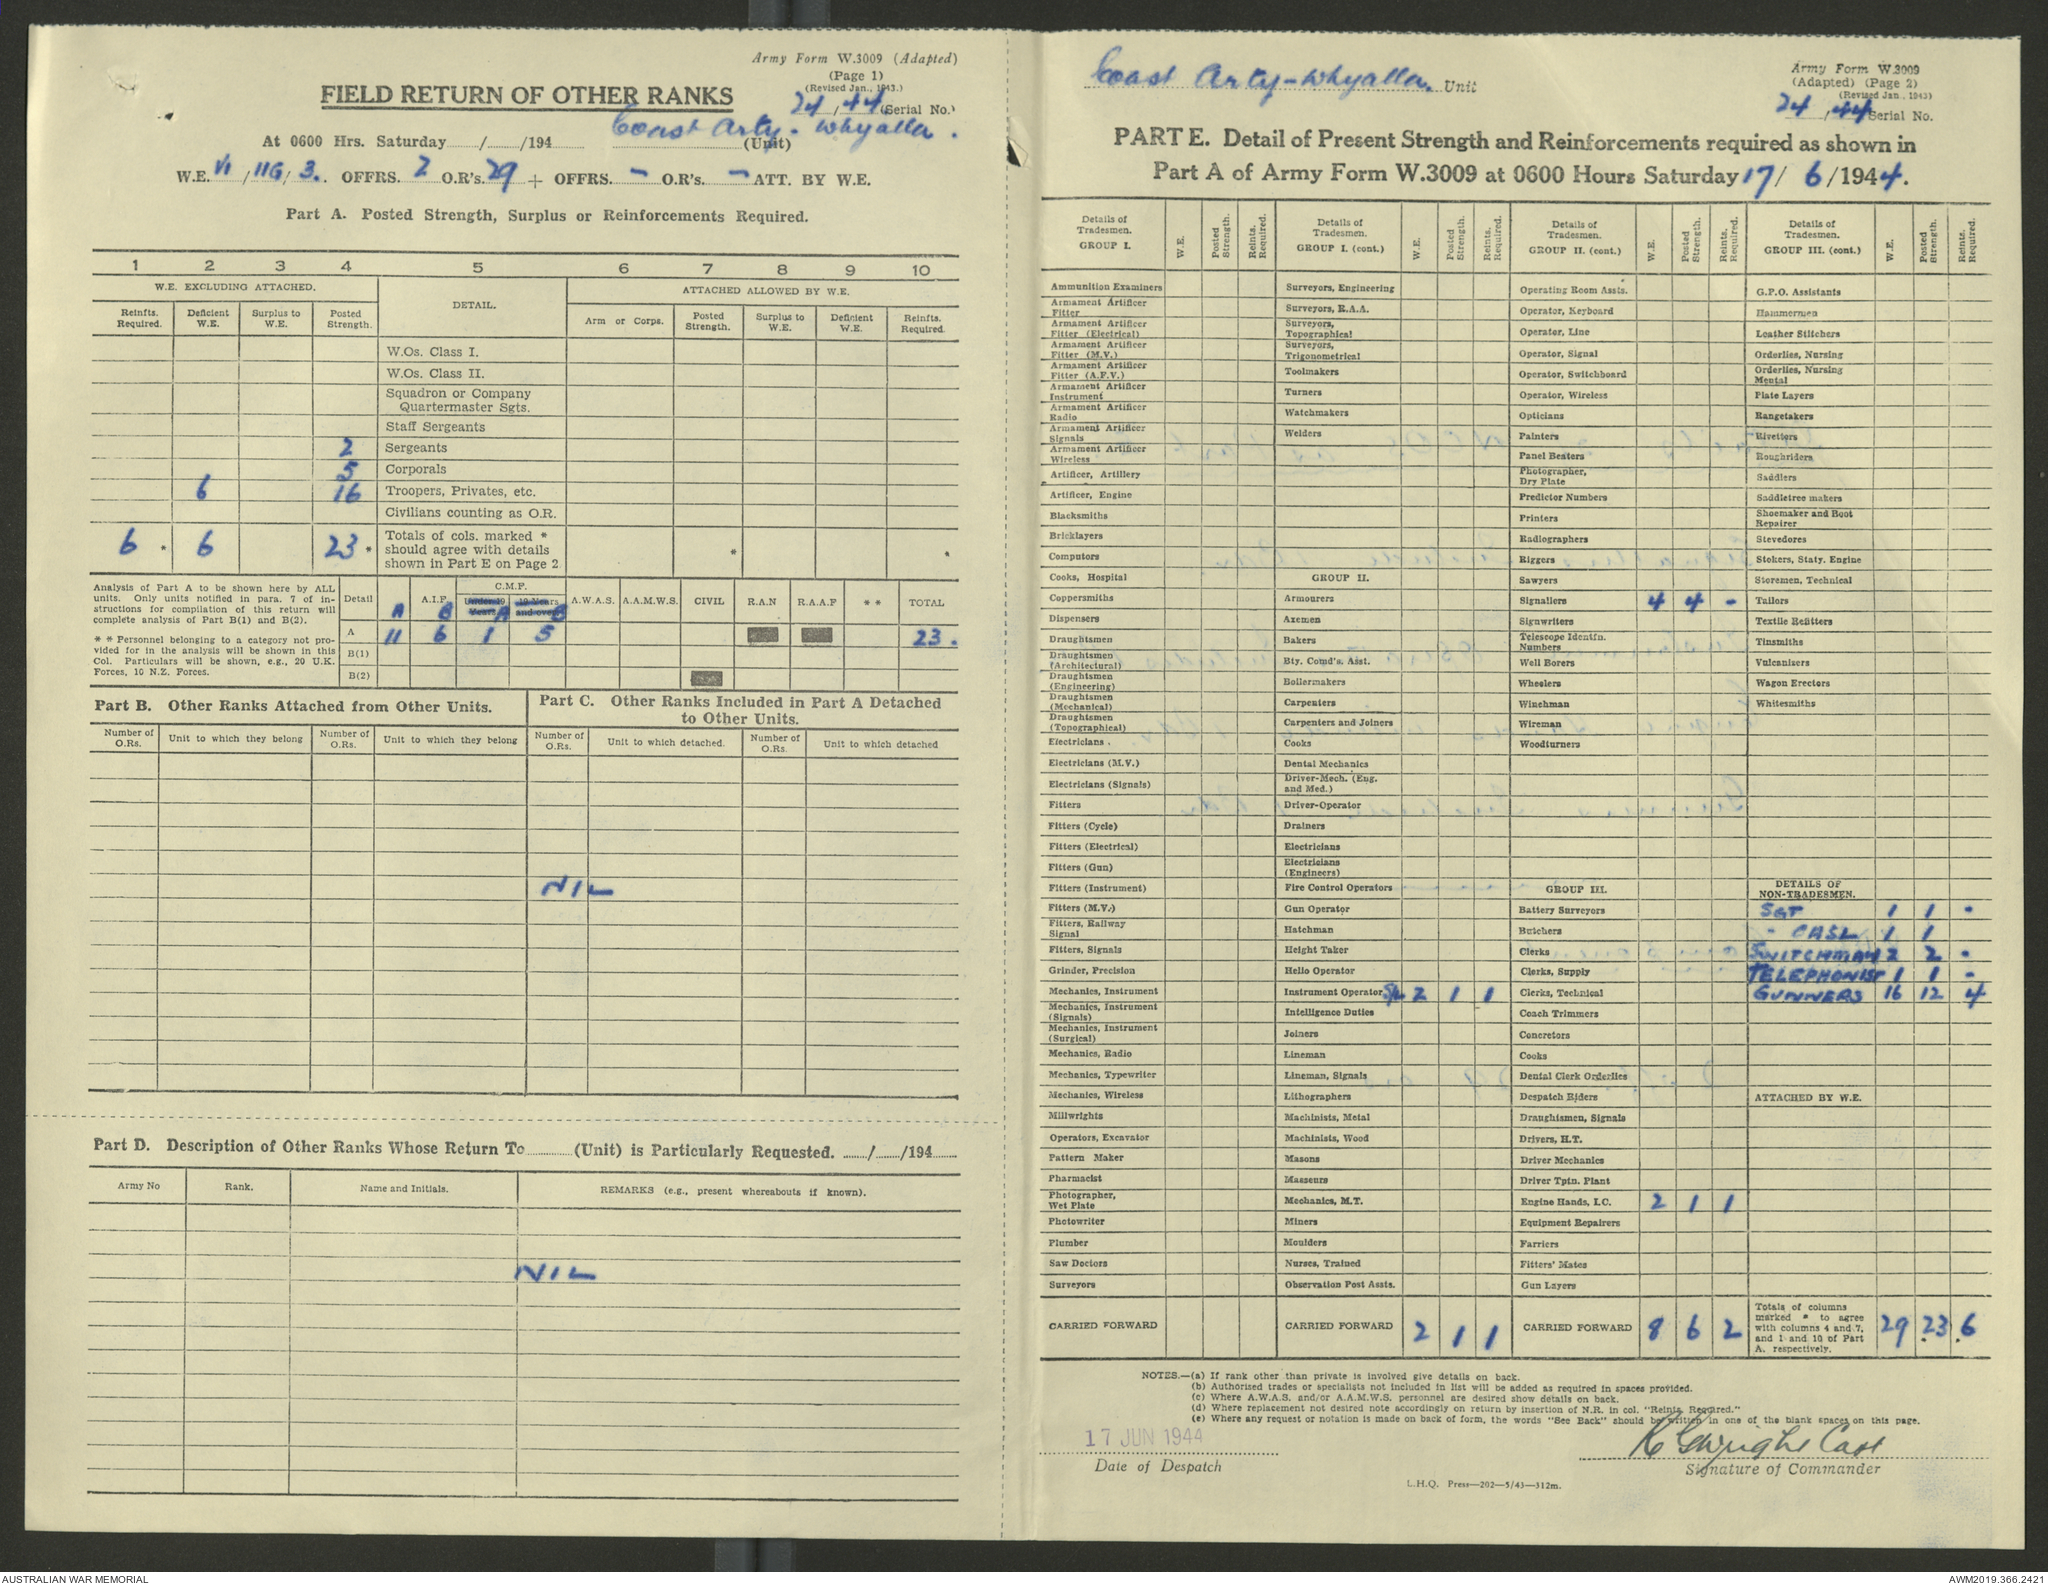 Army Form W.3009 (Adapted)
(Page 1)
(Revised Jan., 1943.)
FIELD RETURN OF OTHER RANKS
24/44 (Serial No.)
At 0600 Hrs. Saturday....../....../194...... Coast Arty - Whyalla. (Unit)
W.E. VI/11G/3. OFFRS. 2 O.R's. 29 + OFFRS. - O.R's. - ATT. BY W.E.
Part A. Posted Strength, Surplus or Reinforcements Required.
1 2 3 4 5 6 7 8 9 10
W.E. EXCLUDING ATTACHED. DETAIL. ATTACHED ALLOWED BY W.E.
Reinfts. Required. Deficient W.E. Surplus to W.E. Posted Strength. Arm or Corps. Posted Strength. Surplus to W.E. Deficient W.E. Reinfts. Required.
W.Os. Class I.
W.Os. Class II.
Squadron or Company
Quartermaster Sgts.
Staff Sergeants
2 Sergeants
5 Corporals
6 16 Troopers, Privates, etc.
Civilians counting as O.R.
6 * 6 23 * Totals of cols. marked * should agree with details shown in Part E on Page 2 * *
Analysis of Part A to be shown here by ALL
units. Only units notified in para. 7 of in-
structions for compilation of this return will
complete analysis of Part B(1) and B(2).
* * Personnel belonging to a category not pro-
vided for in the analysis will be shown in this
Col. Particulars will be shown, e.g., 20 U.K.
Forces, 10 N.Z. Forces.
Detail A.I.F. C.M.F. A.W.A.S. A.A.M.W.S. CIVIL R.A.N R.A.A.F * * TOTAL
A B Under 19 Years A 19 Years and over B
A 11 6 1 5 23.
B(1)
B(2)
Part B. Other Ranks Attached from Other Units.
Number of O.Rs. Unit to which they belong Number of O.Rs. Unit to which they belong
Part C. Other Ranks Included in Part A Detached
to Other Units.
Number of O.Rs. Unit to which detached. Number of O.Rs. Unit to which detached
NIL
Part D. Description of Other Ranks Whose Return To............(Unit) is Particularly Requested. ....../....../194......
Army No Rank. Name and Initials. REMARKS (e.g., present whereabouts if known).
NIL
Coast Arty - Whyalla. Unit
Army Form W.3009
(Adapted) (Page 2)
(Revised Jan., 1943)
24/44 Serial No.
PART E. Detail of Present Strength and Reinforcements required as shown in
Part A of Army Form W.3009 at 0600 Hours Saturday 17/ 6/1944.
Details of Tradesmen. GROUP I. W.E. Posted Strength. Reints. Required.
Ammunition Examiners
Armament Artificer Fitter
Armament Artificer Fitter (Electrical)
Armament Artificer Fitter (M.V.)
Armament Artificer Fitter (A.F.V.)
Armament Artificer Instrument
Armament Artificer Radio
Armament Artificer Signals
Armament Artificer Wireless
Artificer, Artillery
Artificer, Engine
Blacksmiths
Bricklayers
Computors
Cooks, Hospital
Coppersmiths
Dispensers
Draughtsmen
Draughtsmen (Architectural)
Draughtsmen (Engineering)
Draughtsmen (Mechanical)
Draughtsmen (Topographical)
Electricians.
Electricians (M.V.)
Electricians (Signals)
Fitters
Fitters (Cycle)
Fitters (Electrical)
Fitters (Gun)
Fitters (Instrument)
Fitters (M.V.)
Fitters, Railway Signal
Fitters, Signals
Grinder, Precision
Mechanics, Instrument
Mechanics, Instrument (Signals)
Mechanics, Instrument (Surgical)
Mechanics, Radio
Mechanics, Typewriter
Mechanics, Wireless
Millwrights
Operators, Excavator
Pattern Maker
Pharmacist
Photographer, Wet Plate
Photowriter
Plumber
Saw Doctors
Surveyors
CARRIED FORWARD
Details of Tradesmen. GROUP I. (cont.) W.E. Posted Strength. Reints. Required.
Surveyors, Engineering
Surveyors, R.A.A.
Surveyors, Topographical
Surveyors, Trigonometrical
Toolmakers
Turners
Watchmakers
Welders
GROUP II.
Armourers
Axemen
Bakers
Bty. Comd's. Asst.
Boilermakers
Carpenters
Carpenters and Joiners
Cooks
Dental Mechanics
Driver-Mech. (Eng. and Med.)
Driver-Operator
Drainers
Electricians
Electricians (Engineers)
Fire Control Operators
Gun Operator
Hatchman
Height Taker
Helio Operator
Instrument Operator S/L 2 1 1
Intelligence Duties
Joiners
Lineman
Lineman, Signals
Lithographers
Machinists, Metal
Machinists, Wood
Masons
Masseurs
Mechanics, M.T.
Miners
Moulders
Nurses, Trained
Observation Post Assts.
CARRIED FORWARD 2 1 1
Details of Tradesmen. GROUP II. (cont.) W.E. Posted Strength. Reints. Required.
Operating Room Assts.
Operator, Keyboard
Operator, Line
Operator, Signal
Operator, Switchboard
Operator, Wireless
Opticians
Painters
Panel Beaters
Photographer, Dry Plate
Predictor Numbers
Printers
Radiographers
Riggers
Sawyers
Signallers 4 4 -
Signwriters
Telescope Identfn. Numbers
Well Borers
Wheelers
Winchman
Wireman
Woodturners
GROUP III.
Battery Surveyors
Butchers
Clerks
Clerks, Supply
Clerks, Technical
Coach Trimmers
Concretors
Cooks
Dental Clerk Orderlies
Despatch Riders
Draughtsmen, Signals
Drivers, H.T.
Driver Mechanics
Driver Tptn. Plant
Engine Hands, I.C. 2 1 1
Equipment Repairers
Farriers
Fitters' Mates
Gun Layers
CARRIED FORWARD 8 6 2
Details of Tradesmen. GROUP III. (cont.) W.E. Posted Strength. Reints. Required.
G.P.O. Assistants
Hammermen
Leather Stitchers
Orderlies, Nursing
Orderlies, Nursing Mental
Plate Layers
Rangetakers
Rivetters
Roughriders
Saddlers
Saddletree makers
Shoemaker and Boot Repairer
Stevedores
Stokers, Staty. Engine
Storemen, Technical
Tailors
Textile Refitters
Tinsmiths
Vulcanizers
Wagon Erectors
Whitesmiths
DETAILS OF NON-TRADESMEN.
SGT 1 1 -
- CASL 1 1
SWITCHMAN 2 2 -
TELEPHONIST 1 1 -
GUNNERS 16 12 4
ATTACHED BY W.E.
Totals of columns marked * to agree with columns 4 and 7, and 1 and 10 of Part A. respectively. 29 23 6
NOTES.—(a) If rank other than private is involved give details on back.
(b) Authorised trades or specialists not included in list will be added as required in spaces provided.
(c) Where A.W.A.S. and/or A.A.M.W.S. personnel are desired show details on back.
(d) Where replacement not desired note accordingly on return by insertion of N.R. in col. "Reints. Required."
(e) Where any request or notation is made on back of form, the words "See Back" should be written in one of the blank spaces on this page.
17 JUN 1944
Date of Despatch
Signature of Commander
L.H.Q. Press—202—5/43—312m.
AUSTRALIAN WAR MEMORIAL
AWM2019.366.2421